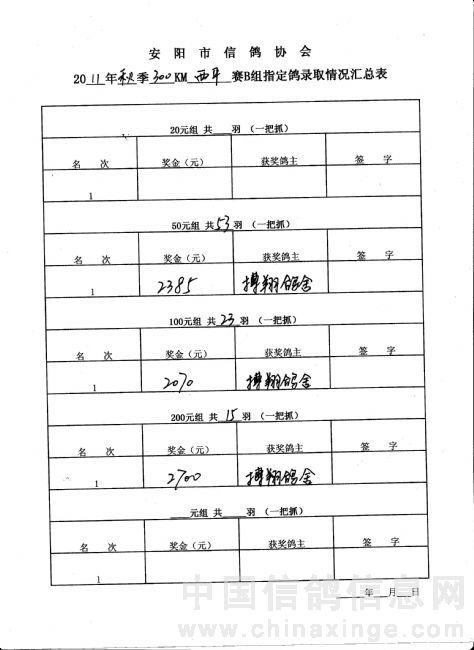 安阳市信鸽协会
2011年秋季300KM西平赛B组指定鸽录取情况汇总表
20元组 共___羽 (一把抓)
名 次 奖金(元) 获奖鸽主 签 字
1
50元组 共53羽 (一把抓)
名 次 奖金(元) 获奖鸽主 签 字
1 2385 搏翔鸽舍
100元组 共23羽 (一把抓)
名 次 奖金(元) 获奖鸽主 签 字
1 2070 搏翔鸽舍
200元组 共15羽 (一把抓)
名 次 奖金(元) 获奖鸽主 签 字
1 2700 搏翔鸽舍
___元组 共___羽 (一把抓)
名 次 奖金(元) 获奖鸽主 签 字
1
___年___月___日
中国信鸽信息网
www.chinaxinge.com